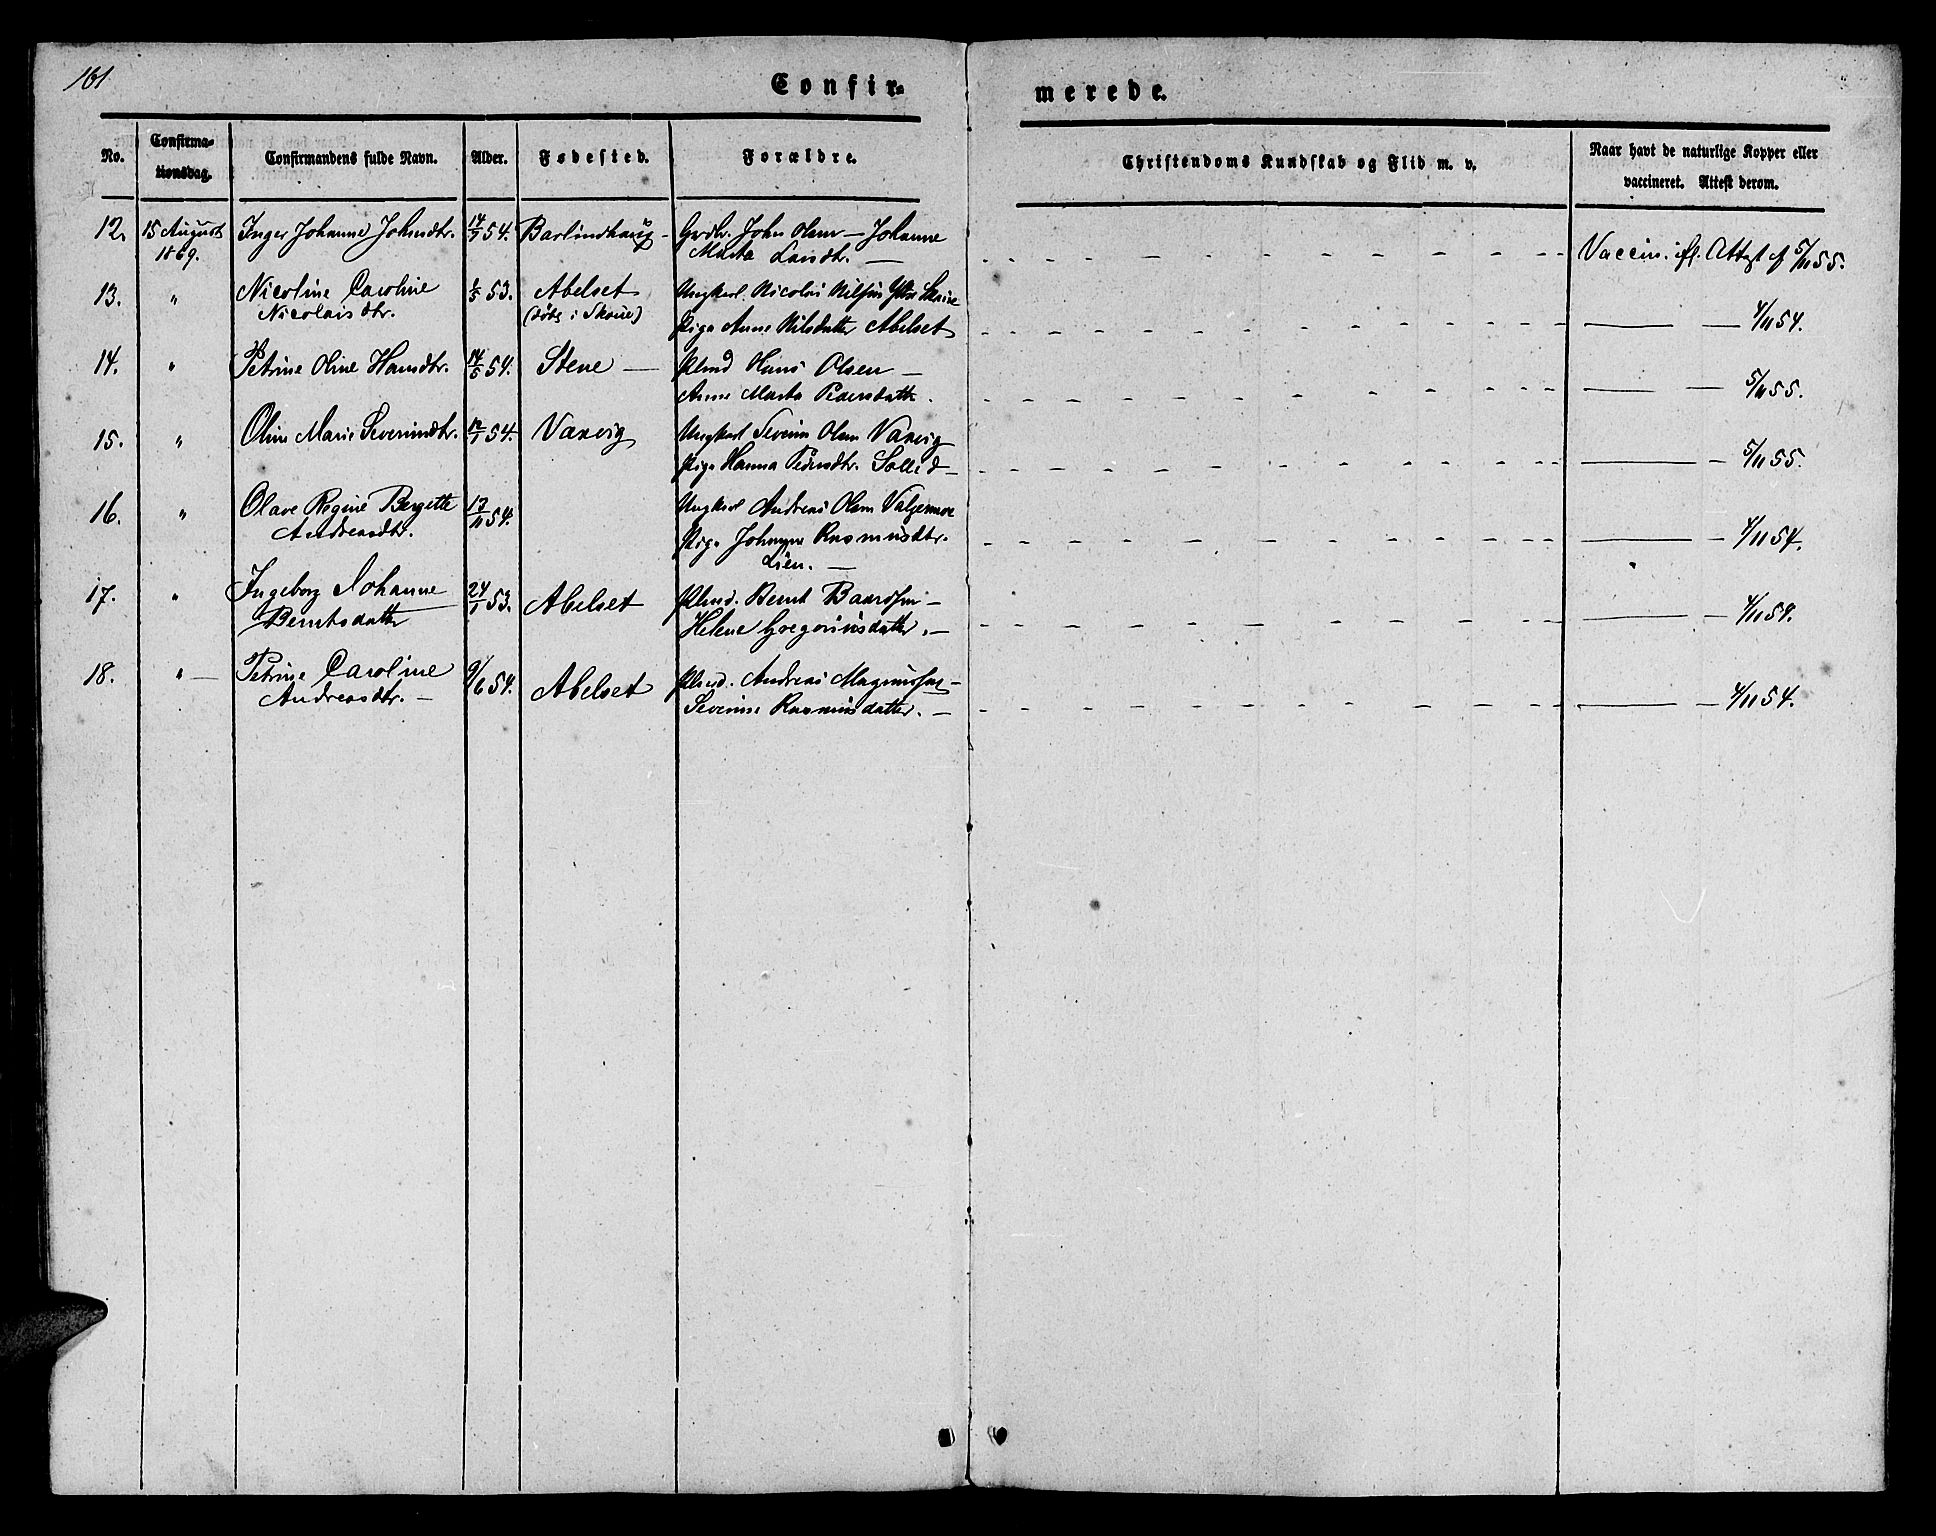 161
Confir=
merede.
No.
Confirma=
tionsdag.
Confirmandens fulde Navn.
Alder.
Fødested.
Forældre.
Christendoms Kundskab og Flid m. v.
Naar havt de naturlige Kopper eller
vaccineret. Attest derom.
12. 15 August Inger Johanne Johndtr. 14/7 54. Barlindhaug - Grdbr. John Olsen - Johanne
1869. Marta Larsdtr. — Vaccin. ifl. Attest af 5/11 55.
13. " Nicoline Caroline 53. Abelset Ungkarl Nicolai Nilsen Ytre Skeie
Nicolaisdtr. (døbt i Skeie) Pige Anne Nilsdatter Abelset 4/11 54.
14. " Petrine Oline Hansdtr. 14/5 54. Stene — Hans Olsen —
Anne Marta Pedersdatter. 5/11 55.
15. " Oline Marie Severinsdtr. 12/7 54. Vaxvig Ungkarl Severin Olsen Vaxvig
Pige Hanna Pedersdtr. Sollid — 5/11 55.
16. " Olave Regine Bergette 13/11 54. Ungkarl Andreas Olsen
Andreasdtr. Pige Johanne Rasmusdtr. 4/11 54.
Lien. —
17. " Ingeborg Johanne 24/1 53. Abelset Bernt Baardsen —
Berntsdatter Helene Gregoriusdatter. — 4/11 54.
18. " — Petrine Caroline 9/6 54. Abelset Andreas Magnussen —
Andreasdtr. — Severine Rasmusdatter. — 4/11 54.